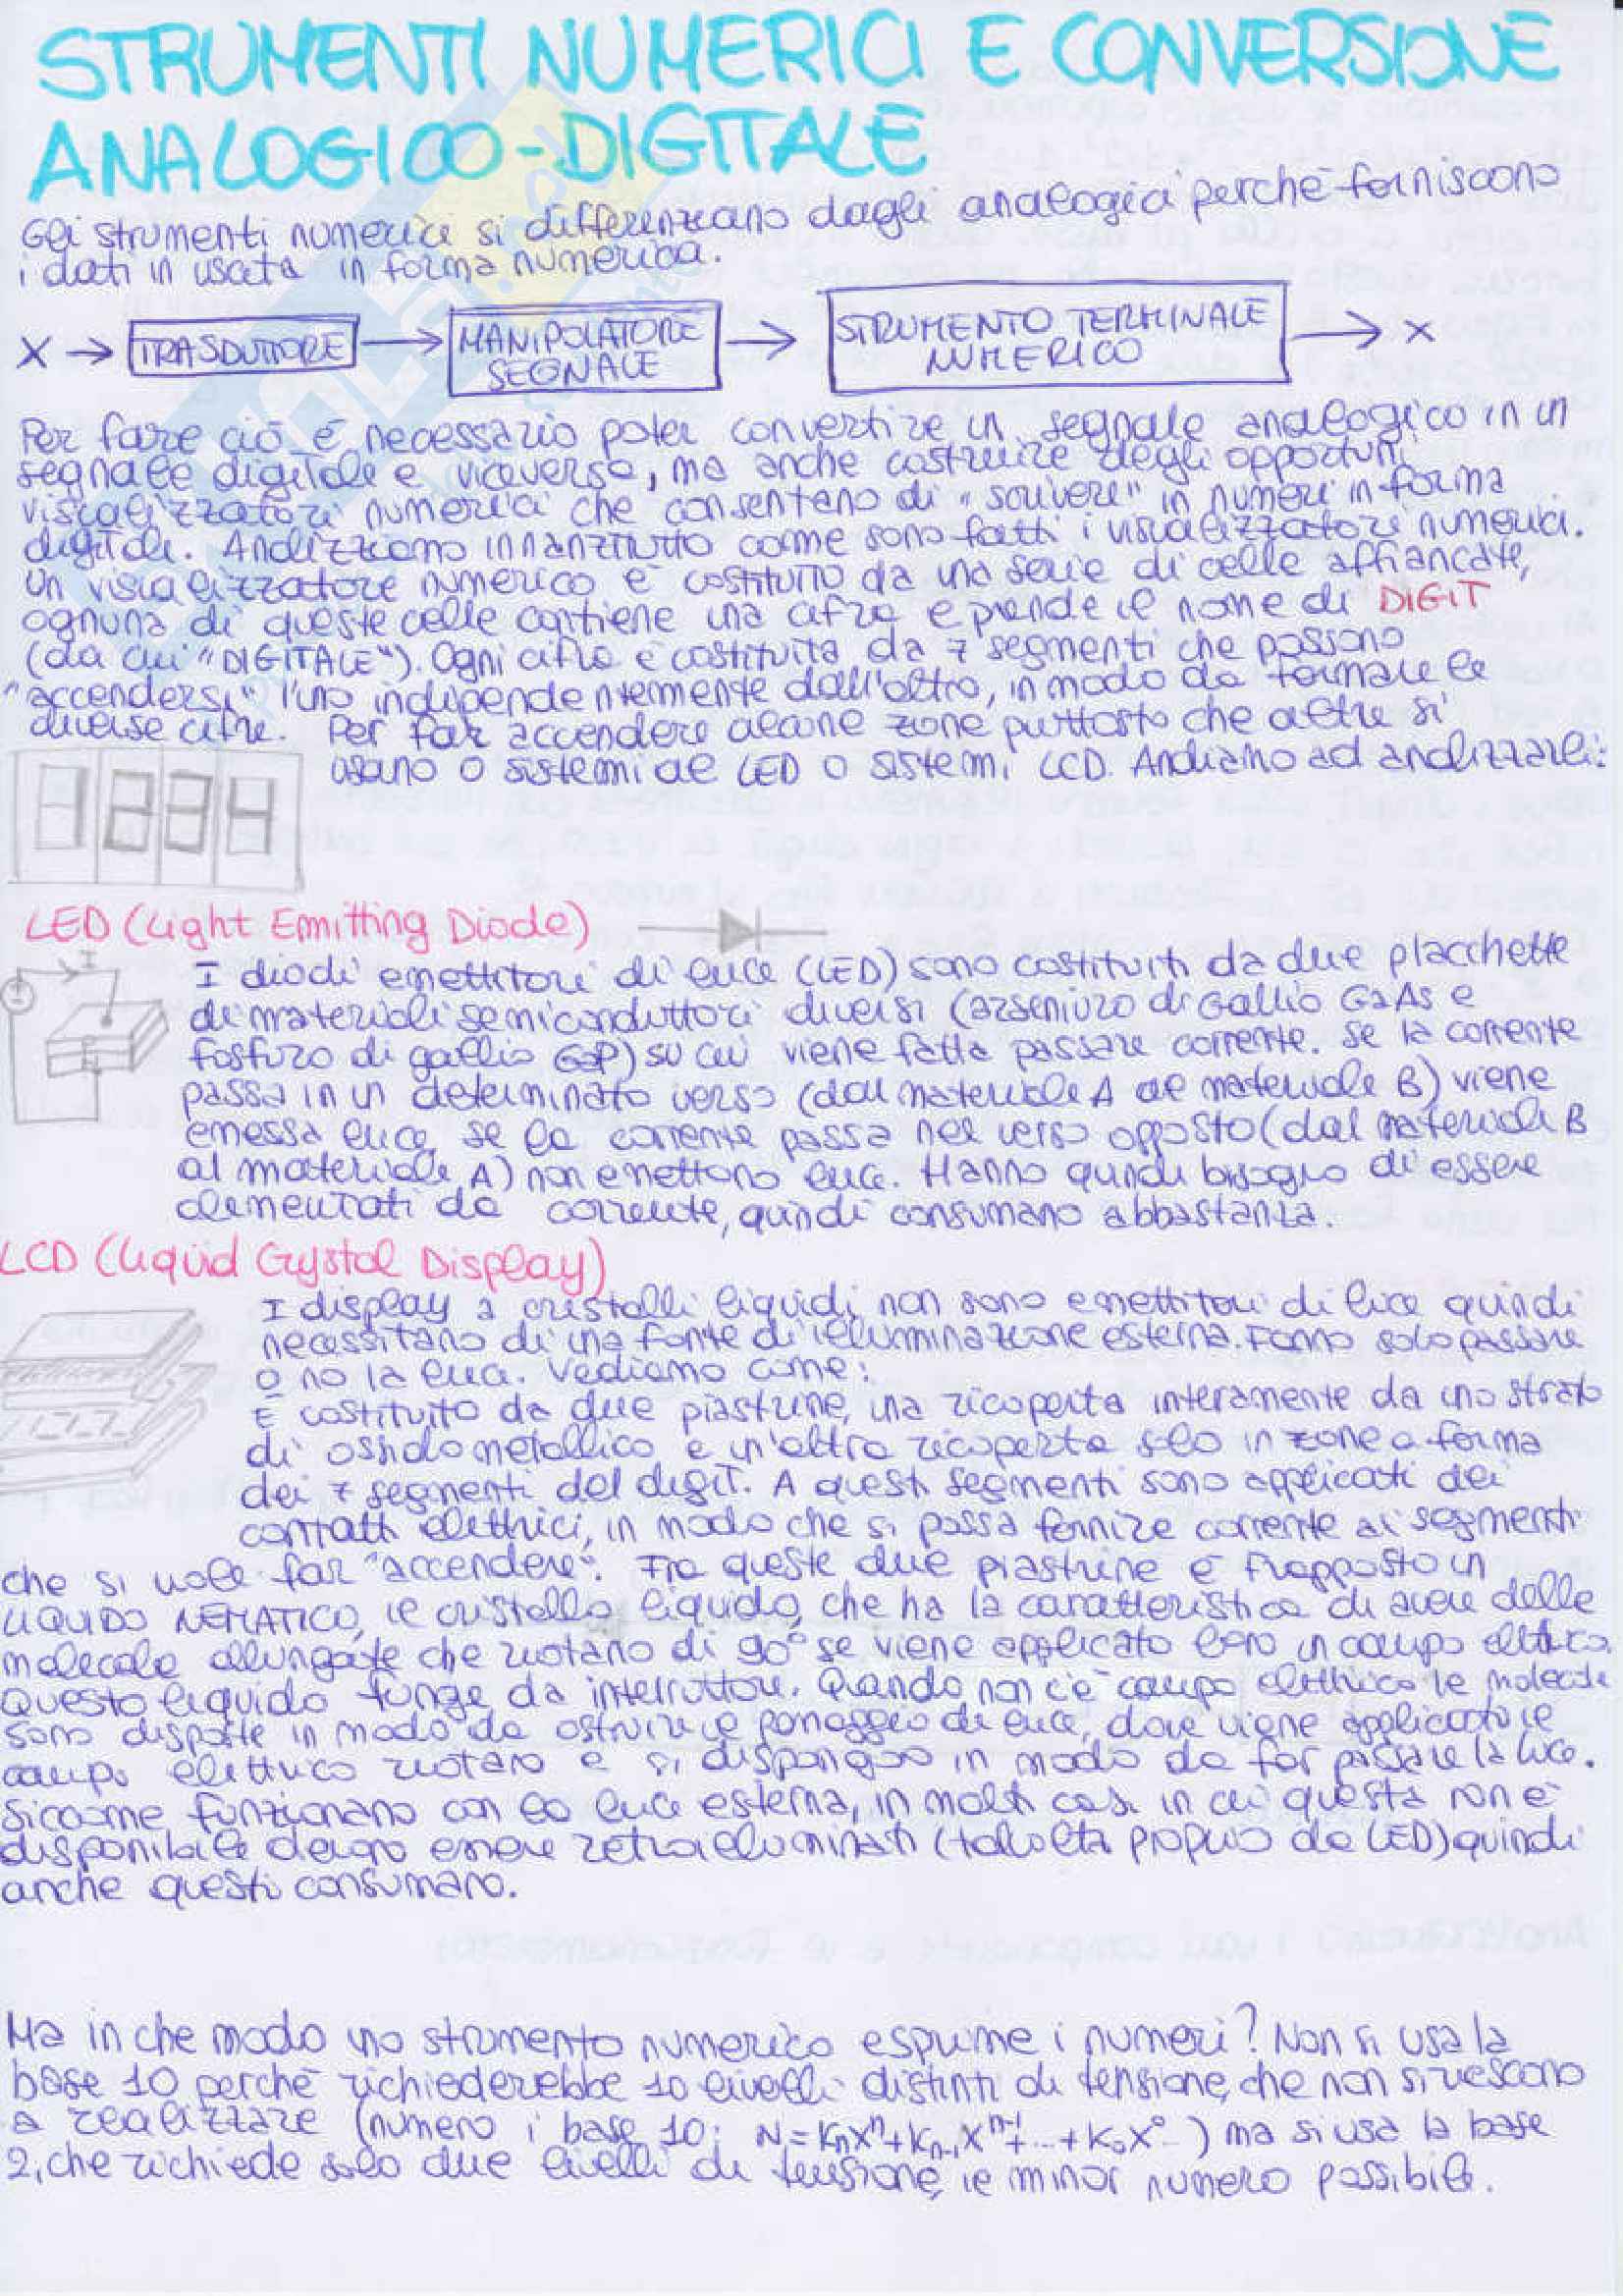 STRUMENTI NUMERICI E CONVERSIONE
ANALOGICO-DIGITALE
Gli strumenti numerici si differenziano dagli analogici perché forniscono
i dati in uscita in forma numerica.
X → TRASDUTTORE → MANIPOLATORE SEGNALE → STRUMENTO TERMINALE NUMERICO → X
Per fare ciò è necessario poter convertire un segnale analogico in un
segnale digitale e viceversa, ma anche costruire degli opportuni
visualizzatori numerici che consentano di "scrivere" in numeri in forma
digitale. Analizziamo innanzitutto come sono fatti i visualizzatori numerici.
Un visualizzatore numerico è costituito da una serie di celle affiancate,
ognuna di queste celle contiene una cifra e prende il nome di DIGIT
(da cui "DIGITALE"). Ogni cifra è costituita da 7 segmenti che possono
"accendersi" l'uno indipendentemente dall'altro, in modo da formare le
diverse cifre. Per far accendere alcune zone piuttosto che altre si
usano o sistemi al LED o sistemi LCD. Andiamo ad analizzarli:
1234
LED (Light Emitting Diode)
I
I diodi emettitori di luce (LED) sono costituiti da due placchette
di materiali semiconduttori diversi (arseniuro di Gallio GaAs e
fosfuro di gallio GaP) su cui viene fatta passare corrente. Se la corrente
passa in un determinato verso (dal materiale A al materiale B) viene
emessa luce, se la corrente passa nel verso opposto (dal materiale B
al materiale A) non emettono luce. Hanno quindi bisogno di essere
alimentati da corrente, quindi consumano abbastanza.
LCD (Liquid Crystal Display)
I display a cristalli liquidi non sono emettitori di luce quindi
necessitano di una fonte di illuminazione esterna. Fanno solo passare
o no la luce. Vediamo come:
È costituito da due piastrine, una ricoperta interamente da uno strato
di ossido metallico e un'altra ricoperta solo in zone a forma
dei 7 segmenti del digit. A questi segmenti sono applicati dei
contatti elettrici, in modo che si possa fornire corrente ai segmenti
che si vuole far "accendere". Fra queste due piastrine è frapposto un
LIQUIDO NEMATICO, il cristallo liquido, che ha la caratteristica di avere delle
molecole allungate che ruotano di 90° se viene applicato loro un campo elettrico.
Questo liquido funge da interruttore. Quando non c'è campo elettrico le molecole
sono disposte in modo da ostruire il passaggio di luce, dove viene applicato il
campo elettrico ruotano e si dispongono in modo da far passare la luce.
Siccome funzionano con la luce esterna, in molti casi in cui questa non è
disponibile devono essere retroilluminati (talvolta proprio da LED) quindi
anche questi consumano.
Ma in che modo uno strumento numerico esprime i numeri? Non si usa la
base 10 perché richiederebbe 10 livelli distinti di tensione, che non si riescono
a realizzare (numero i base 10: N = KnXⁿ + Kn-1Xⁿ⁻¹ + ... + K0X⁰ ) ma si usa la base
2, che richiede solo due livelli di tensione, il minor numero possibile.